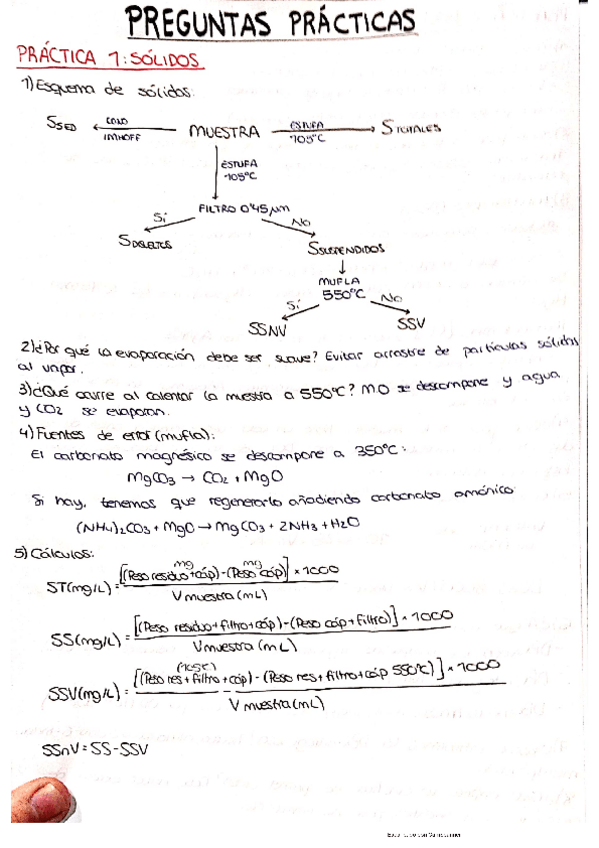 PREGUNTAS PRÁCTICAS
PRÁCTICA 1: SÓLIDOS
1) Esquema de sólidos:
SSED ← CONO IMHOFF MUESTRA ESTUFA 105ºC → STOTALES
ESTUFA
105ºC
FILTRO 0'45 µm
Sí No
SDISUELTOS SSUSPENDIDOS
MUFLA
550ºC
Sí No
SSNV SSV
2) ¿Por qué la evaporación debe ser suave? Evitar arrastre de partículas sólidas
al vapor.
3) ¿Qué ocurre al calentar la muestra a 550ºC? M.O se descompone y agua
y CO2 se evaporan.
4) Fuentes de error (mufla):
El carbonato magnésico se descompone a 350ºC:
MgCO3 → CO2 + MgO
Si hay, tenemos que regenerarlo añadiendo carbonato amónico
(NH4)2CO3 + MgO → MgCO3 + 2NH3 + H2O
5) Cálculos:
mg mg
ST(mg/L) = [(Peso residuo + cáp) - (Peso cáp)] * 1000
V muestra (mL)
SS(mg/L) = [(Peso residuo + filtro + cáp) - (Peso cáp + filtro)] * 1000
V muestra (mL)
(105ºC)
SSV(mg/L) = [(Peso res + filtro + cáp) - (Peso res + filtro + cáp 550ºC)] * 1000
V muestra (mL)
SSnV = SS - SSV